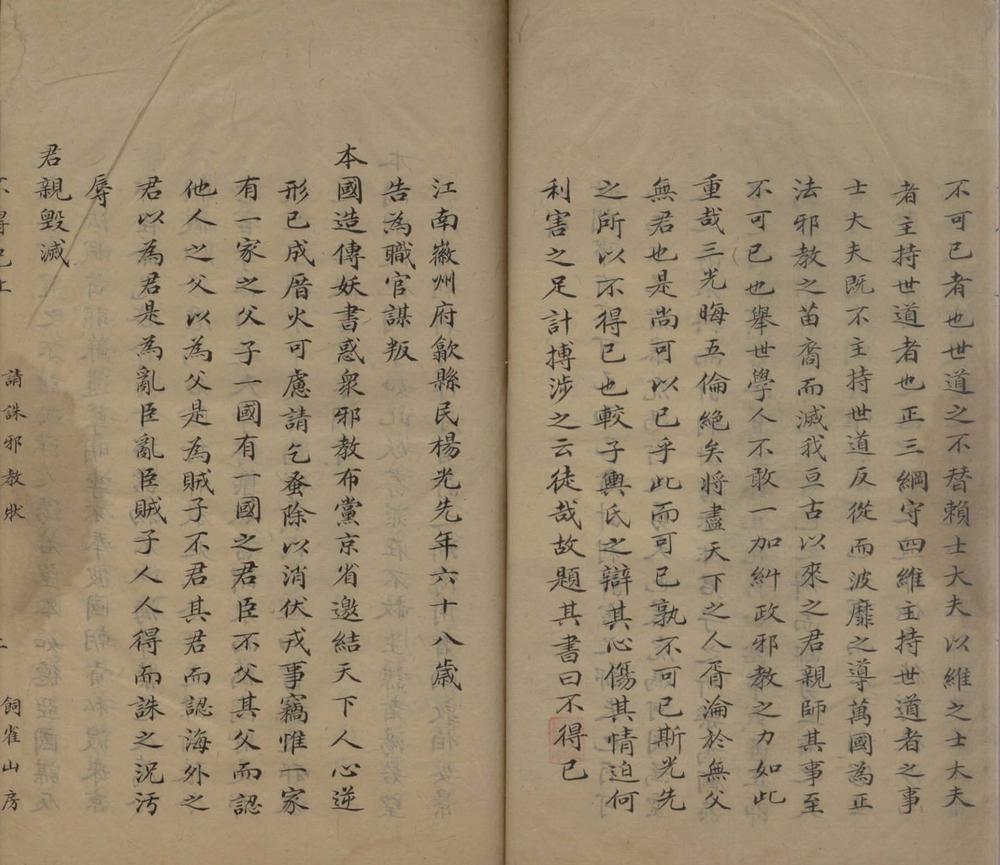 不可已者也世道之不替賴士大夫以維之士大夫
者主持世道者也正三綱守四維主持世道者之事
士大夫既不主持世道反從而波靡之導萬國為正
法邪教之苗裔而滅我亘古以來之君親師其事至
不可已也舉世學人不敢一加糾政邪教之力如此
重哉三光晦五倫絕矣將盡天下之人胥淪於無父
無君也是尚可以已乎此而可已孰不可已斯光先
之所以不得已也較子輿氏之辯其心傷其情迫何
利害之足計搏涉之云徒哉故題其書曰不得已
江南徽州府歙縣民楊光先年六十八歲
告為職官謀叛
本國造傳妖書惑衆邪教布黨京省邀結天下人心逆
形已成厝火可慮請乞蚤除以消伏戎事竊惟一家
有一家之父子一國有一國之君臣不父其父而認
他人之父以為父是為賊子不君其君而認海外之
君以為君是為亂臣亂臣賊子人人得而誅之況污
辱
君親毀滅
不得已上 請誅邪教狀 飼雀山房